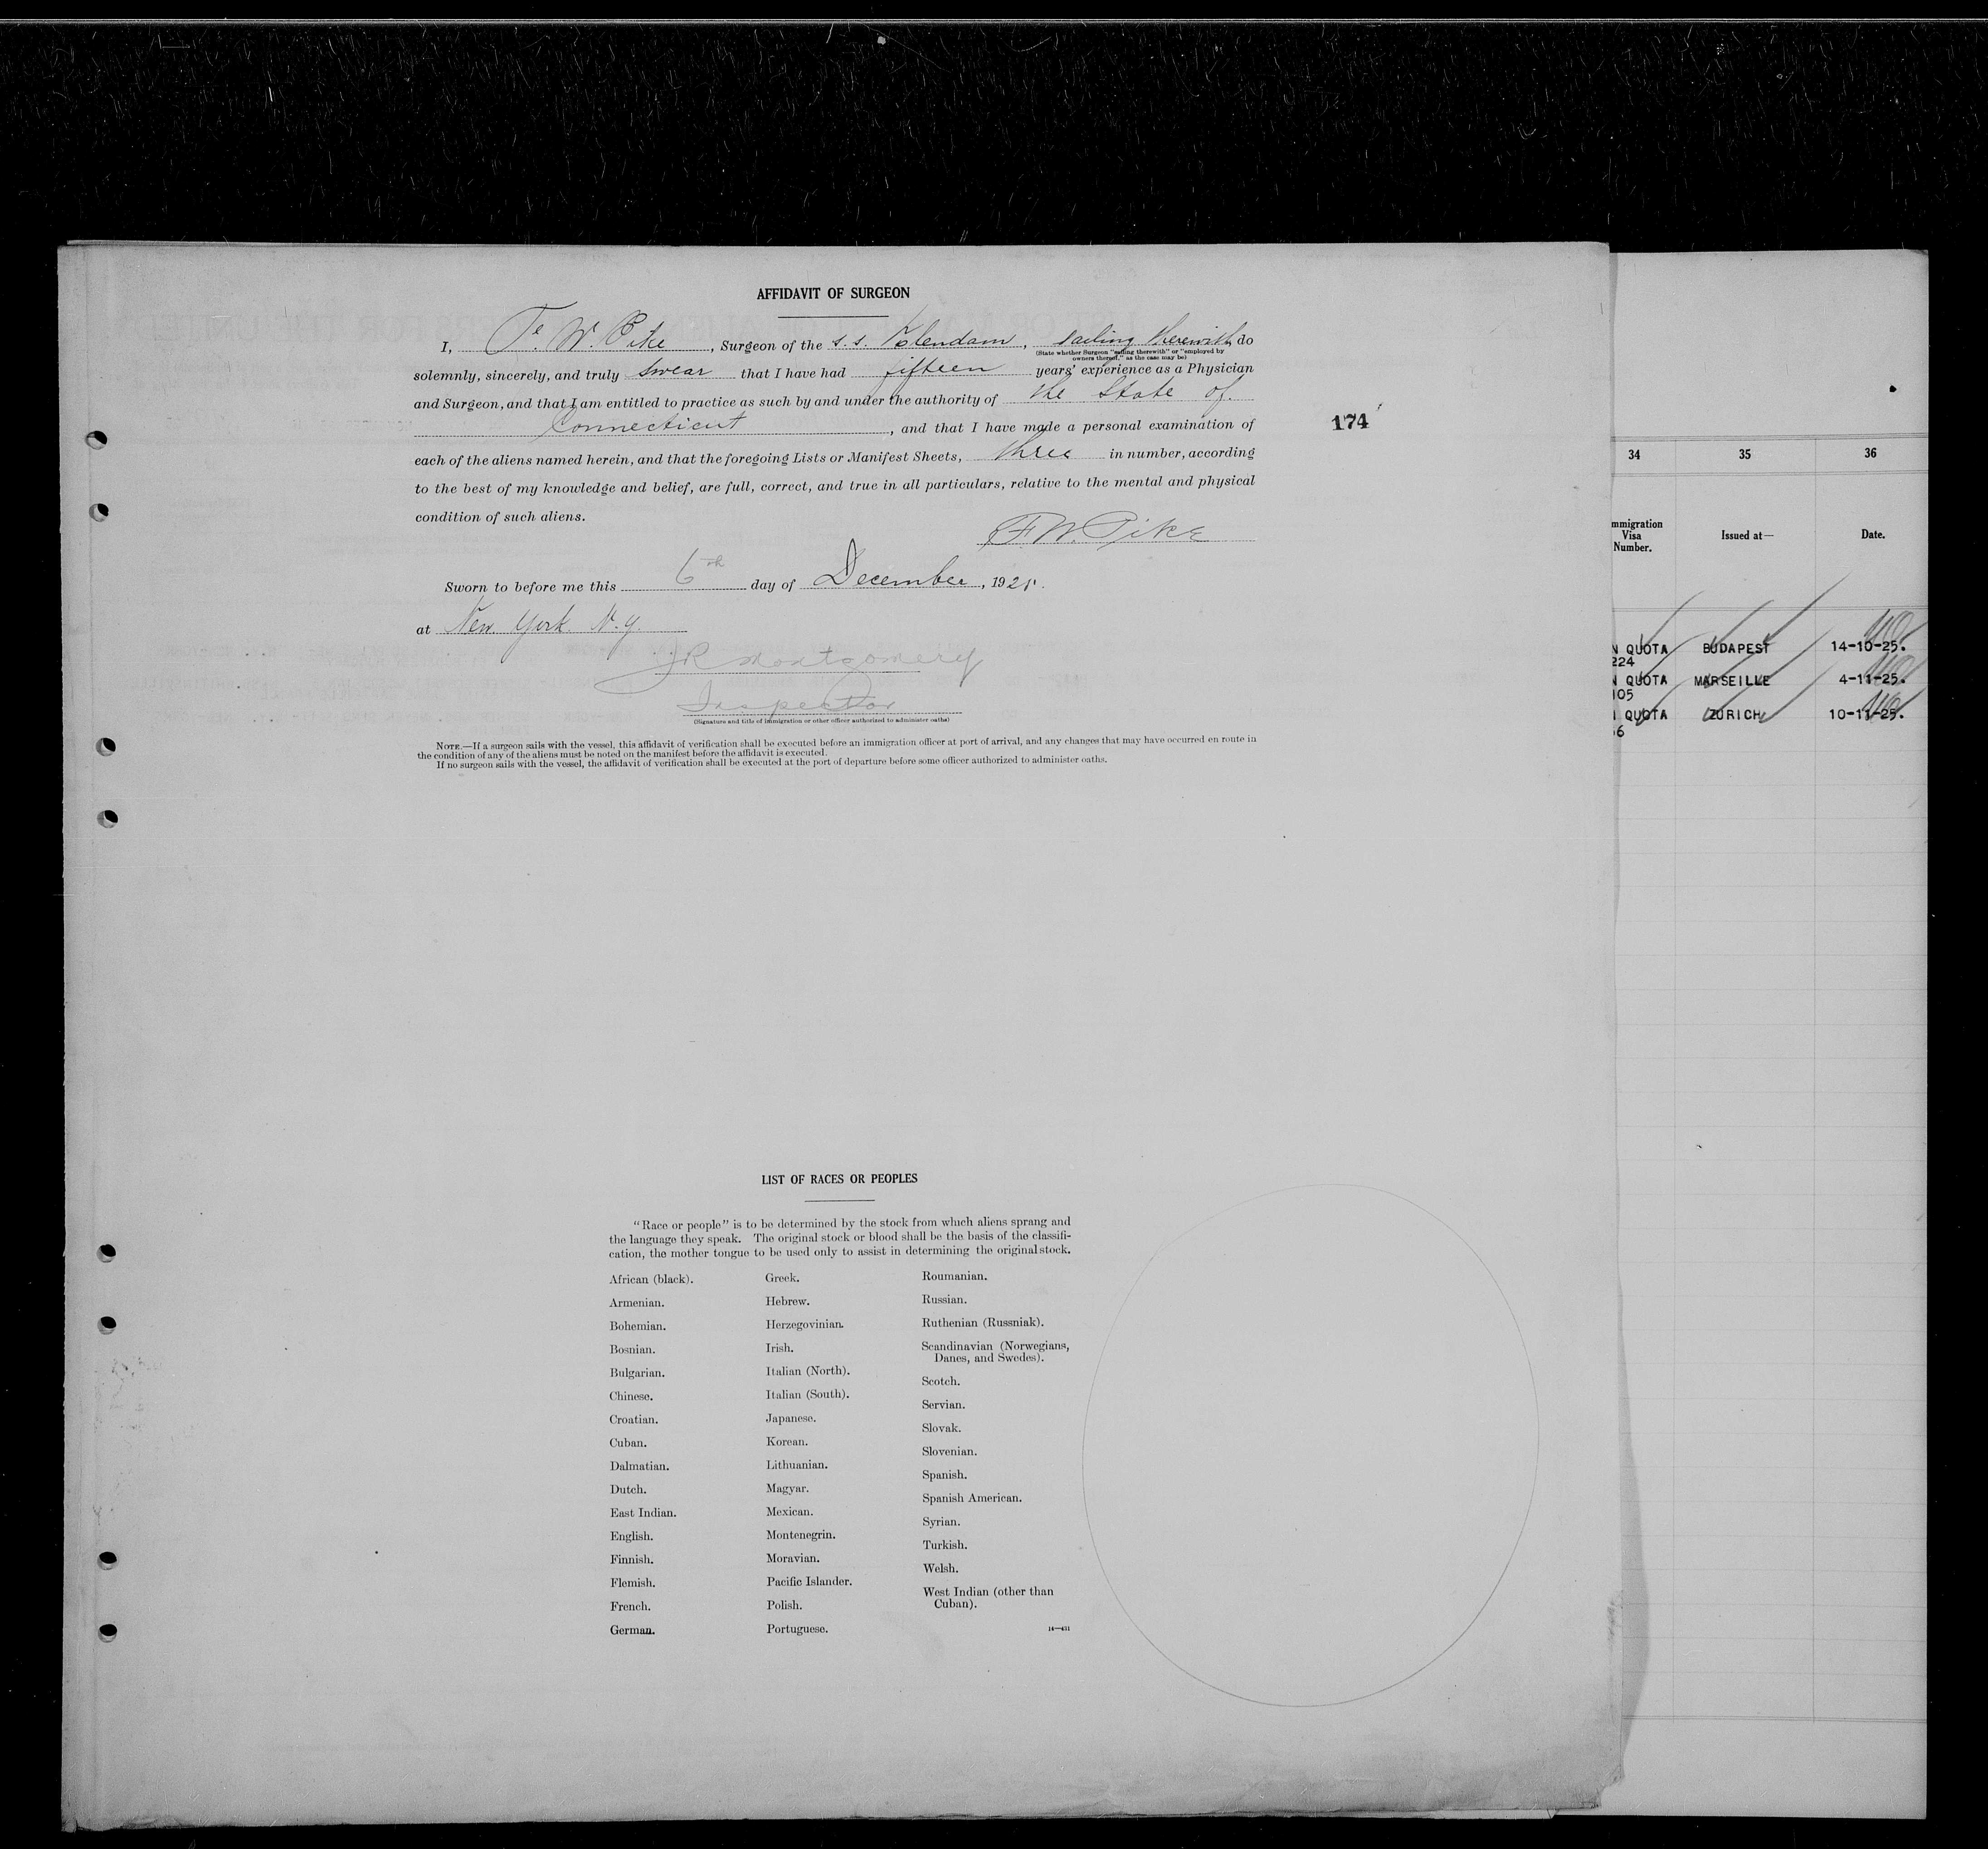 AFFIDAVIT OF SURGEON
I, F. W. Pike, Surgeon of the s.s. Volendam, sailing therewith, do
(State whether Surgeon "sailing therewith" or "employed by
owners thereof," as the case may be)
solemnly, sincerely, and truly swear that I have had fifteen years' experience as a Physician
and Surgeon, and that I am entitled to practice as such by and under the authority of the State of
Connecticut, and that I have made a personal examination of
174
each of the aliens named herein, and that the foregoing Lists or Manifest Sheets, three in number, according
to the best of my knowledge and belief, are full, correct, and true in all particulars, relative to the mental and physical
condition of such aliens.
F. W. Pike
Sworn to before me this 6th day of December, 1925.
at New York. N.Y.
JR Montgomery
Inspector
(Signature and title of immigration or other officer authorized to administer oaths)
NOTE.—If a surgeon sails with the vessel, this affidavit of verification shall be executed before an immigration officer at port of arrival, and any changes that may have occurred en route in
the condition of any of the aliens must be noted on the manifest before the affidavit is executed.
If no surgeon sails with the vessel, the affidavit of verification shall be executed at the port of departure before some officer authorized to administer oaths.
LIST OF RACES OR PEOPLES
"Race or people" is to be determined by the stock from which aliens sprang and
the language they speak. The original stock or blood shall be the basis of the classifi-
cation, the mother tongue to be used only to assist in determining the original stock.
African (black).
Armenian.
Bohemian.
Bosnian.
Bulgarian.
Chinese.
Croatian.
Cuban.
Dalmatian.
Dutch.
East Indian.
English.
Finnish.
Flemish.
French.
German.
Greek.
Hebrew.
Herzegovinian.
Irish.
Italian (North).
Italian (South).
Japanese.
Korean.
Lithuanian.
Magyar.
Mexican.
Montenegrin.
Moravian.
Pacific Islander.
Polish.
Portuguese.
Roumanian.
Russian.
Ruthenian (Russniak).
Scandinavian (Norwegians,
Danes, and Swedes).
Scotch.
Servian.
Slovak.
Slovenian.
Spanish.
Spanish American.
Syrian.
Turkish.
Welsh.
West Indian (other than
Cuban).
14—431
34 35 36
mmigration
Visa
Number.
Issued at—
Date.
N QUOTA BUDAPEST 14-10-25.
224
N QUOTA MARSEILLE 4-11-25.
105
QUOTA ZURICH 10-11-25.
6